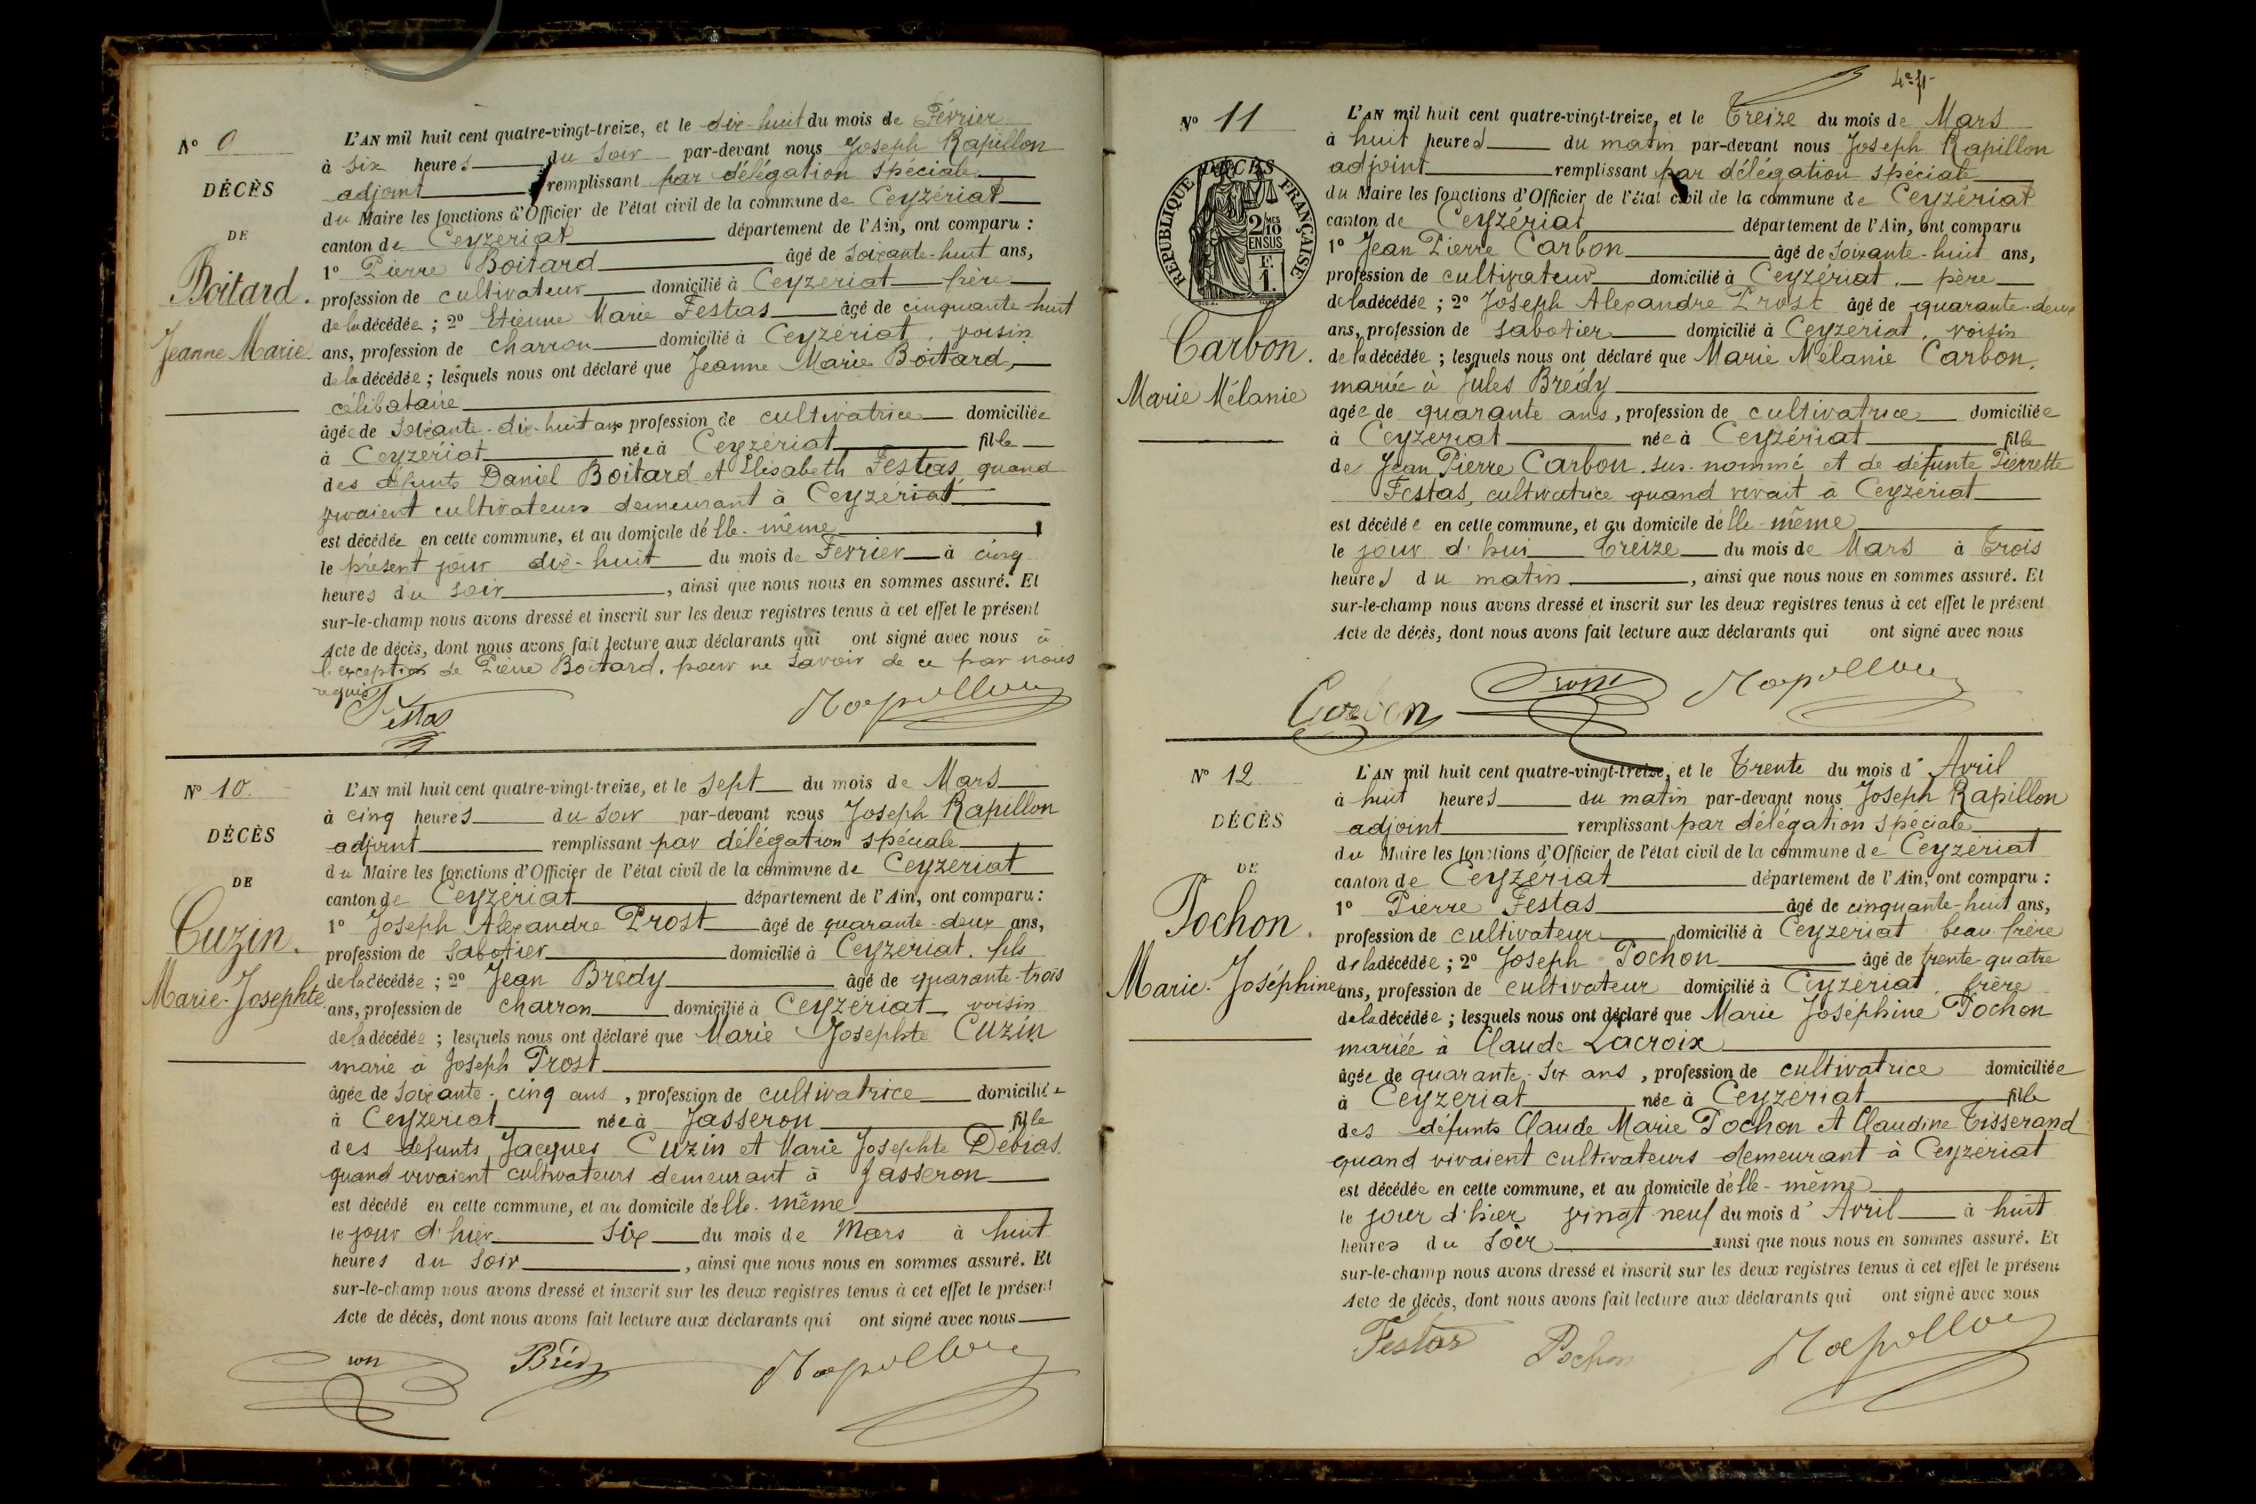 N° 9
DÉCÈS
DE
Boitard.
Jeanne Marie
L'AN mil huit cent quatre-vingt-treize, et le dix-huit du mois de Février
à six heures du soir par-devant nous Joseph Rapillon
adjoint remplissant par délégation spéciale
du Maire les fonctions d'Officier de l'état civil de la commune de Ceyzériat
canton de Ceyzeriat département de l'Ain, ont comparu :
1° Pierre Boitard âgé de soixante-huit ans,
profession de cultivateur domicilié à Ceyzeriat frère
de la décédée ; 2° Etienne Marie Festas âgé de cinquante huit
ans, profession de charron domicilié à Ceyzériat, voisin
de la décédée ; lesquels nous ont déclaré que Jeanne Marie Boitard,
célibataire
âgée de soixante-dix-huit ans profession de cultivatrice domiciliée
à Ceyzériat née à Ceyzériat fille
des défunts Daniel Boitard et Elisabeth Festas, quand
vivaient cultivateurs demeurant à Ceyzériat
est décédée en cette commune, et au domicile d'elle-même
le présent jour dix-huit du mois de Ferrier à cinq
heures du soir, ainsi que nous nous en sommes assuré. Et
sur-le-champ nous avons dressé et inscrit sur les deux registres tenus à cet effet le présent
Acte de décès, dont nous avons fait lecture aux déclarants qui ont signé avec nous à
l'exception de Pierre Boitard, pour ne savoir de ce par nous
requis
Festas Rapillon
N° 10.
DÉCÈS
DE
Cuzin.
Marie-Josephte
L'AN mil huit cent quatre-vingt-treize, et le sept du mois de Mars
à cinq heures du soir par-devant nous Joseph Rapillon
adjoint remplissant par délégation spéciale
du Maire les fonctions d'Officier de l'état civil de la commune de Ceyzeriat
canton de Ceyzériat département de l'Ain, ont comparu :
1° Joseph Alexandre Prost âgé de quarante-deux ans,
profession de sabotier domicilié à Ceyzeriat. fils
de la décédée ; 2° Jean Brédy âgé de quarante-trois
ans, profession de charron domicilié à Ceyzériat voisin
de la décédée ; lesquels nous ont déclaré que Marie Josephte Cuzin
marié à Joseph Prost
âgée de soixante-cinq ans, profession de cultivatrice domiciliée
à Ceyzeriat née à Jasseron fille
des defunts Jacques Cuzin et Marie Josephte Debias
quand vivaient cultivateurs demeurant à Jasseron
est décédé en cette commune, et au domicile d'elle-même
le jour d'hier six du mois de Mars à huit
heures du soir, ainsi que nous nous en sommes assuré. Et
sur-le-champ nous avons dressé et inscrit sur les deux registres tenus à cet effet le présent
Acte de décès, dont nous avons fait lecture aux déclarants qui ont signé avec nous
Brédy Rapillon
N° 11
DÉCÈS
RÉPUBLIQUE FRANÇAISE
2/10 MES
EN SUS
F. 1.
Carbon.
Marie Mélanie
L'AN mil huit cent quatre-vingt-treize, et le Treize du mois de Mars
à huit heures du matin par-devant nous Joseph Rapillon
adjoint remplissant par délégation spéciale
du Maire les fonctions d'Officier de l'état civil de la commune de Ceyzériat
canton de Ceyzériat département de l'Ain, ont comparu
1° Jean Pierre Carbon âgé de soixante-huit ans,
profession de cultivateur domicilié à Ceyzériat, père
de la décédée ; 2° Joseph Alexandre Prost âgé de quarante-deux
ans, profession de sabotier domicilié à Ceyzeriat, voisin
de la décédée ; lesquels nous ont déclaré que Marie Mélanie Carbon,
mariée à Jules Brédy
âgée de quarante ans, profession de cultivatrice domiciliée
à Ceyzeriat née à Ceyzériat fille
de Jean Pierre Carbon sus-nommé et de défunte Pierrette
Festas, cultivatrice quand vivait à Ceyzériat
est décédée en cette commune, et au domicile d'elle-même
le jour d'hui Treize du mois de Mars à trois
heures du matin, ainsi que nous nous en sommes assuré. Et
sur-le-champ nous avons dressé et inscrit sur les deux registres tenus à cet effet le présent
Acte de décès, dont nous avons fait lecture aux déclarants qui ont signé avec nous
Carbon Rapillon
N° 12
DÉCÈS
DE
Pochon.
Marie-Joséphine
L'AN mil huit cent quatre-vingt-treize, et le Trente du mois d'Avril
à huit heures du matin par-devant nous Joseph Rapillon
adjoint remplissant par délégation spéciale
du Maire les fonctions d'Officier de l'état civil de la commune de Ceyzériat
canton de Ceyzériat département de l'Ain, ont comparu :
1° Pierre Festas âgé de cinquante-huit ans,
profession de cultivateur domicilié à Ceyzeriat beau-frère
de la décédée ; 2° Joseph Pochon âgé de trente-quatre
ans, profession de cultivateur domicilié à Ceyzériat, frère
de la décédée ; lesquels nous ont déclaré que Marie Joséphine Pochon
mariée à Claude Lacroix
âgée de quarante-six ans, profession de cultivatrice domiciliée
à Ceyzeriat née à Ceyzériat fille
des défunts Claude Marie Pochon et Claudine Tisserand
quand vivaient cultivateurs demeurant à Ceyzériat
est décédée en cette commune, et au domicile d'elle-même
le jour d'hier vingt-neuf du mois d'Avril à huit
heures du soir ainsi que nous nous en sommes assuré. Et
sur-le-champ nous avons dressé et inscrit sur les deux registres tenus à cet effet le présent
Acte de décès, dont nous avons fait lecture aux déclarants qui ont signé avec nous
Festas Pochon Rapillon